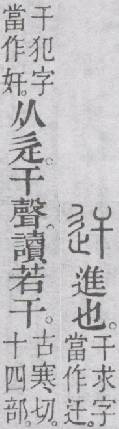 迀 進也。干求字當作迀。
干犯字當作奸。从辵。干聲。讀若干。古寒切。十四部。